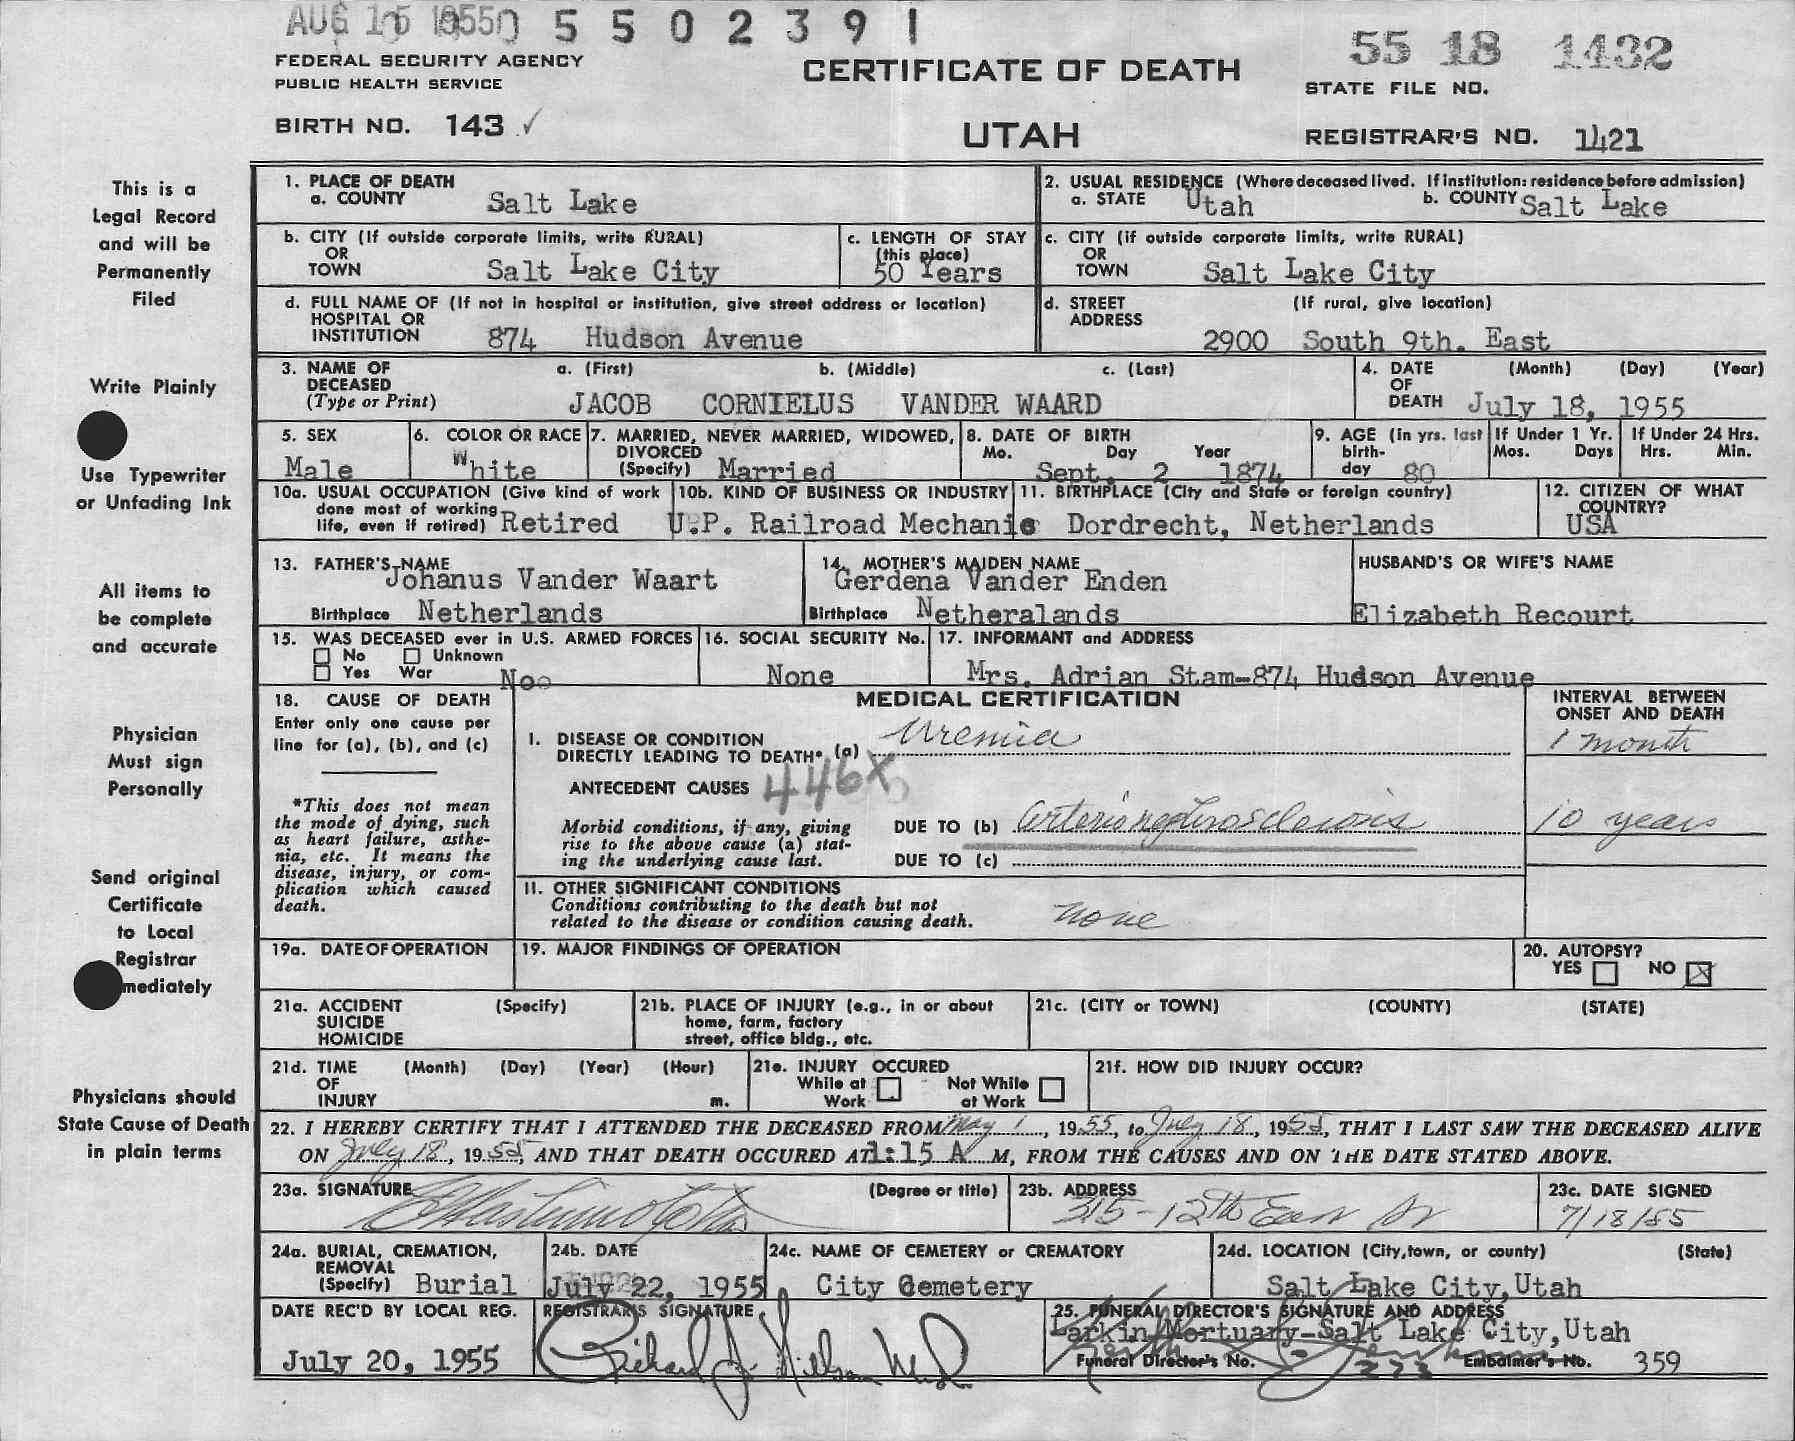 AUG 15 1955 5 5 0 2 3 9 1
55 18 1432
FEDERAL SECURITY AGENCY
PUBLIC HEALTH SERVICE
CERTIFICATE OF DEATH
STATE FILE NO.
BIRTH NO. 143 ✓
UTAH
REGISTRAR'S NO. 1421
This is a
Legal Record
and will be
Permanently
Filed
Write Plainly
Use Typewriter
or Unfading Ink
All items to
be complete
and accurate
Physician
Must sign
Personally
Send original
Certificate
to Local
Registrar
mediately
Physicians should
State Cause of Death
in plain terms
1. PLACE OF DEATH
a. COUNTY Salt Lake
2. USUAL RESIDENCE (Where deceased lived. If institution: residence before admission)
a. STATE Utah b. COUNTY Salt Lake
b. CITY (If outside corporate limits, write RURAL)
OR
TOWN Salt Lake City
c. LENGTH OF STAY
(this place)
50 Years
c. CITY (if outside corporate limits, write RURAL)
OR
TOWN Salt Lake City
d. FULL NAME OF (If not in hospital or institution, give street address or location)
HOSPITAL OR
INSTITUTION 874 Hudson Avenue
d. STREET (If rural, give location)
ADDRESS
2900 South 9th. East
3. NAME OF a. (First) b. (Middle) c. (Last)
DECEASED
(Type or Print) JACOB CORNIELUS VANDER WAARD
4. DATE (Month) (Day) (Year)
OF
DEATH July 18, 1955
5. SEX
Male
6. COLOR OR RACE
White
7. MARRIED, NEVER MARRIED, WIDOWED,
DIVORCED
(Specify) Married
8. DATE OF BIRTH
Mo. Day Year
Sept. 2 1874
9. AGE (in yrs. last
birth-
day 80
If Under 1 Yr.
Mos. Days
If Under 24 Hrs.
Hrs. Min.
10a. USUAL OCCUPATION (Give kind of work
done most of working
life, even if retired) Retired
10b. KIND OF BUSINESS OR INDUSTRY
U.P. Railroad Mechanic
11. BIRTHPLACE (City and State or foreign country)
Dordrecht, Netherlands
12. CITIZEN OF WHAT
COUNTRY?
USA
13. FATHER'S NAME
Johanus Vander Waart
Birthplace Netherlands
14. MOTHER'S MAIDEN NAME
Gerdena Vander Enden
Birthplace Netheralands
HUSBAND'S OR WIFE'S NAME
Elizabeth Recourt
15. WAS DECEASED ever in U.S. ARMED FORCES
No Unknown
Yes War Noo
16. SOCIAL SECURITY No.
None
17. INFORMANT and ADDRESS
Mrs. Adrian Stam-874 Hudson Avenue
18. CAUSE OF DEATH
Enter only one cause per
line for (a), (b), and (c)
*This does not mean
the mode of dying, such
as heart failure, asthe-
nia, etc. It means the
disease, injury, or com-
plication which caused
death.
MEDICAL CERTIFICATION
INTERVAL BETWEEN
ONSET AND DEATH
I. DISEASE OR CONDITION
DIRECTLY LEADING TO DEATH* (a) Uremia
1 month
ANTECEDENT CAUSES 446X
Morbid conditions, if any, giving
rise to the above cause (a) stat-
ing the underlying cause last.
DUE TO (b) Arterionephrosclerosis
10 years
DUE TO (c)
II. OTHER SIGNIFICANT CONDITIONS
Conditions contributing to the death but not
related to the disease or condition causing death.
none
19a. DATE OF OPERATION
19. MAJOR FINDINGS OF OPERATION
20. AUTOPSY?
YES NO X
21a. ACCIDENT (Specify)
SUICIDE
HOMICIDE
21b. PLACE OF INJURY (e.g., in or about
home, farm, factory
street, office bldg., etc.
21c. (CITY or TOWN) (COUNTY) (STATE)
21d. TIME (Month) (Day) (Year) (Hour)
OF
INJURY m.
21e. INJURY OCCURED
While at Not While
Work at Work
21f. HOW DID INJURY OCCUR?
22. I HEREBY CERTIFY THAT I ATTENDED THE DECEASED FROM May 1, 1955, to July 18, 1955, THAT I LAST SAW THE DECEASED ALIVE
ON July 18, 1955, AND THAT DEATH OCCURED AT 1:15 A M, FROM THE CAUSES AND ON THE DATE STATED ABOVE.
23a. SIGNATURE (Degree or title)
23b. ADDRESS
315-12th East
23c. DATE SIGNED
7/18/55
24a. BURIAL, CREMATION,
REMOVAL
(Specify) Burial
24b. DATE
July 22, 1955
24c. NAME OF CEMETERY or CREMATORY
City Cemetery
24d. LOCATION (City, town, or county) (State)
Salt Lake City, Utah
DATE REC'D BY LOCAL REG.
July 20, 1955
REGISTRAR'S SIGNATURE
Richard
25. FUNERAL DIRECTOR'S SIGNATURE AND ADDRESS
Larkin Mortuary-Salt Lake City, Utah
Funeral Director's No. 273 Embalmer's No. 359